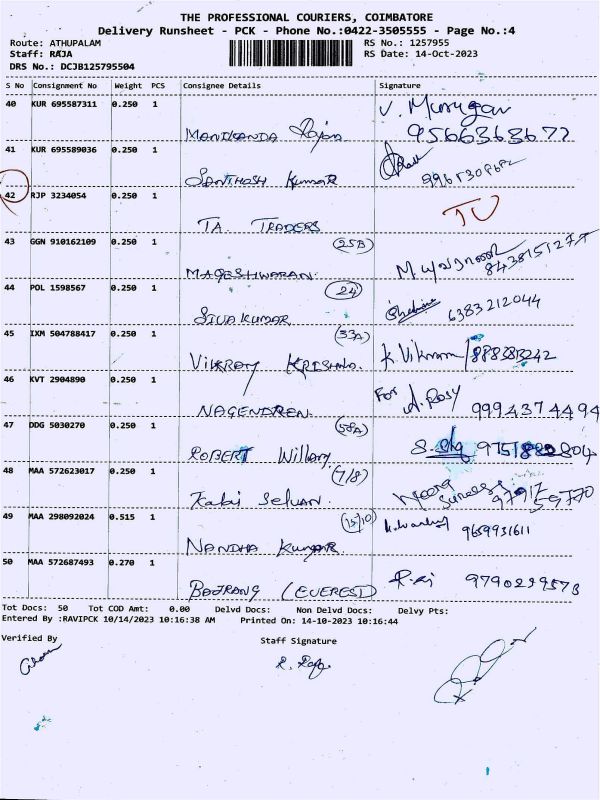 THE PROFESSIONAL COURIERS, COIMBATORE
Delivery Runsheet - PCK - Phone No.:0422-3505555 - Page No.:4
Route: ATHUPALAM RS No.: 1257955
Staff: RAJA RS Date: 14-Oct-2023
DRS No.: DCJB125795504
S No Consignment No Weight PCS Consignee Details Signature
40 KUR 695587311 0.250 1 V. Murugan
Manikanda Rajan 9566363672
41 KUR 695589036 0.250 1
Santhosh Kumar
42 RJP 3234054 0.250 1
TA TRADERS
43 GGN 910162109 0.250 1 (25B)
MAGESHWARAN 8438151277
44 POL 1598567 0.250 1 (24)
SIVA KUMAR 6383212044
45 IXM 504788417 0.250 1 (33A)
Vikram Krishna K. Vikram / 888383242
46 KVT 2904890 0.250 1 For A. Rosy
NAGENDREN 9994374494
47 DDG 5030270 0.250 1 (58A)
ROBERT William
48 MAA 572623017 0.250 1 (7/8)
Kalai Selvan
49 MAA 298092024 0.515 1 (15/10)
NANDHA Kumar 9659931611
50 MAA 572687493 0.270 1
BAJRANG (EVEREST) 9790299573
Tot Docs: 50 Tot COD Amt: 0.00 Delvd Docs: Non Delvd Docs: Delvy Pts:
Entered By :RAVIPCK 10/14/2023 10:16:38 AM Printed On: 14-10-2023 10:16:44
Verified By Staff Signature